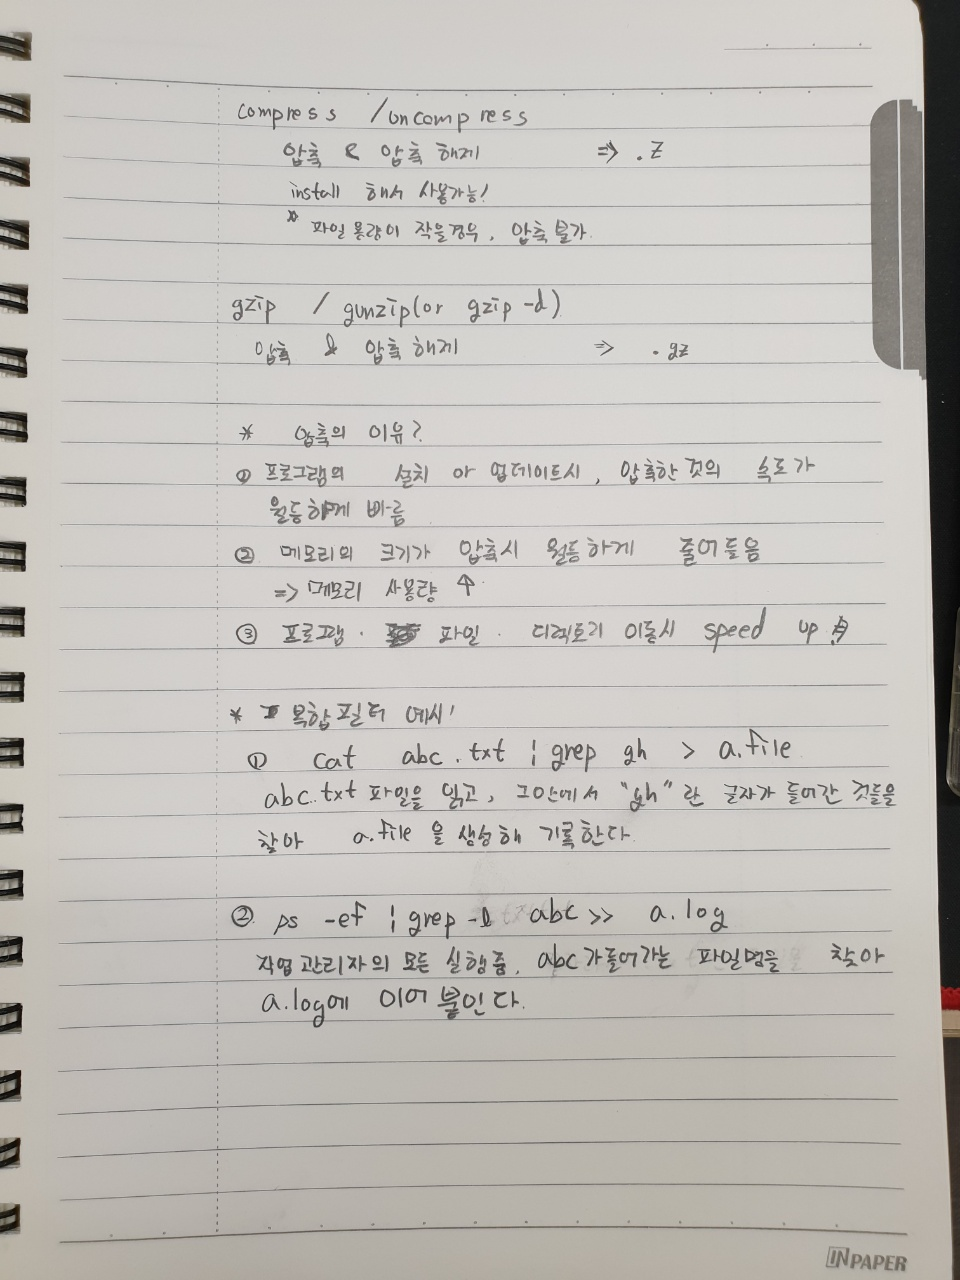 compress / uncompress
압축 & 압축 해제 => .Z
install 해서 사용가능!
* 파일 용량이 작을경우, 압축 불가.
gzip / gunzip(or gzip -d)
압축 & 압축 해제 => .gz
* 압축의 이유?
① 프로그램의 설치 or 업데이트시, 압축한 것의 속도가
월등하게 빠름
② 메모리의 크기가 압축시 월등하게 줄어들음
=> 메모리 사용량 ↑
③ 프로그램 · 파일 · 디렉토리 이동시 speed up
* 복합필터 예시!
① cat abc.txt | grep gh > a.file
abc.txt 파일을 읽고, 그안에서 "gh"란 글자가 들어간 것들을
찾아 a.file 을 생성해 기록한다.
② ps -ef | grep abc >> a.log
작업관리자의 모든 실행중, abc가들어가는 파일명을 찾아
a.log에 이어 붙인다.
INPAPER